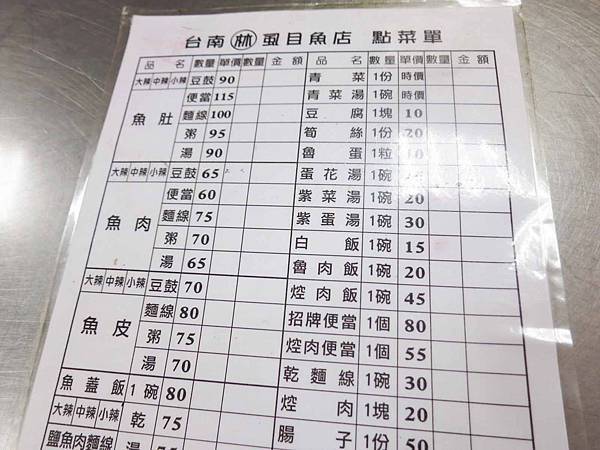 台南 林 虱目魚店 點菜單
品名 數量 單價 數量 金額 品名 數量 單價 數量 金額
大辣 中辣 小辣 豆鼓 90
魚肚 便當 115
麵線 100
粥 95
湯 90
大辣 中辣 小辣 豆鼓 65
魚肉 便當 60
麵線 75
粥 70
湯 65
大辣 中辣 小辣 豆鼓 70
魚皮 麵線 80
粥 75
湯 70
魚蓋飯 1碗 80
大辣 中辣 小辣 乾 75
鹽魚肉麵線 湯
青菜 1份 時價
青菜湯 1碗 時價
豆腐 1塊 10
筍絲 1份 20
魯蛋 1粒 10
蛋花湯 1碗
紫菜湯 1碗 20
紫蛋湯 1碗 30
白飯 1碗 15
魯肉飯 1碗 20
焢肉飯 1碗 45
招牌便當 1個 80
焢肉便當 1個 55
乾麵線 1碗 30
焢肉 1塊 20
腸子 1份 50